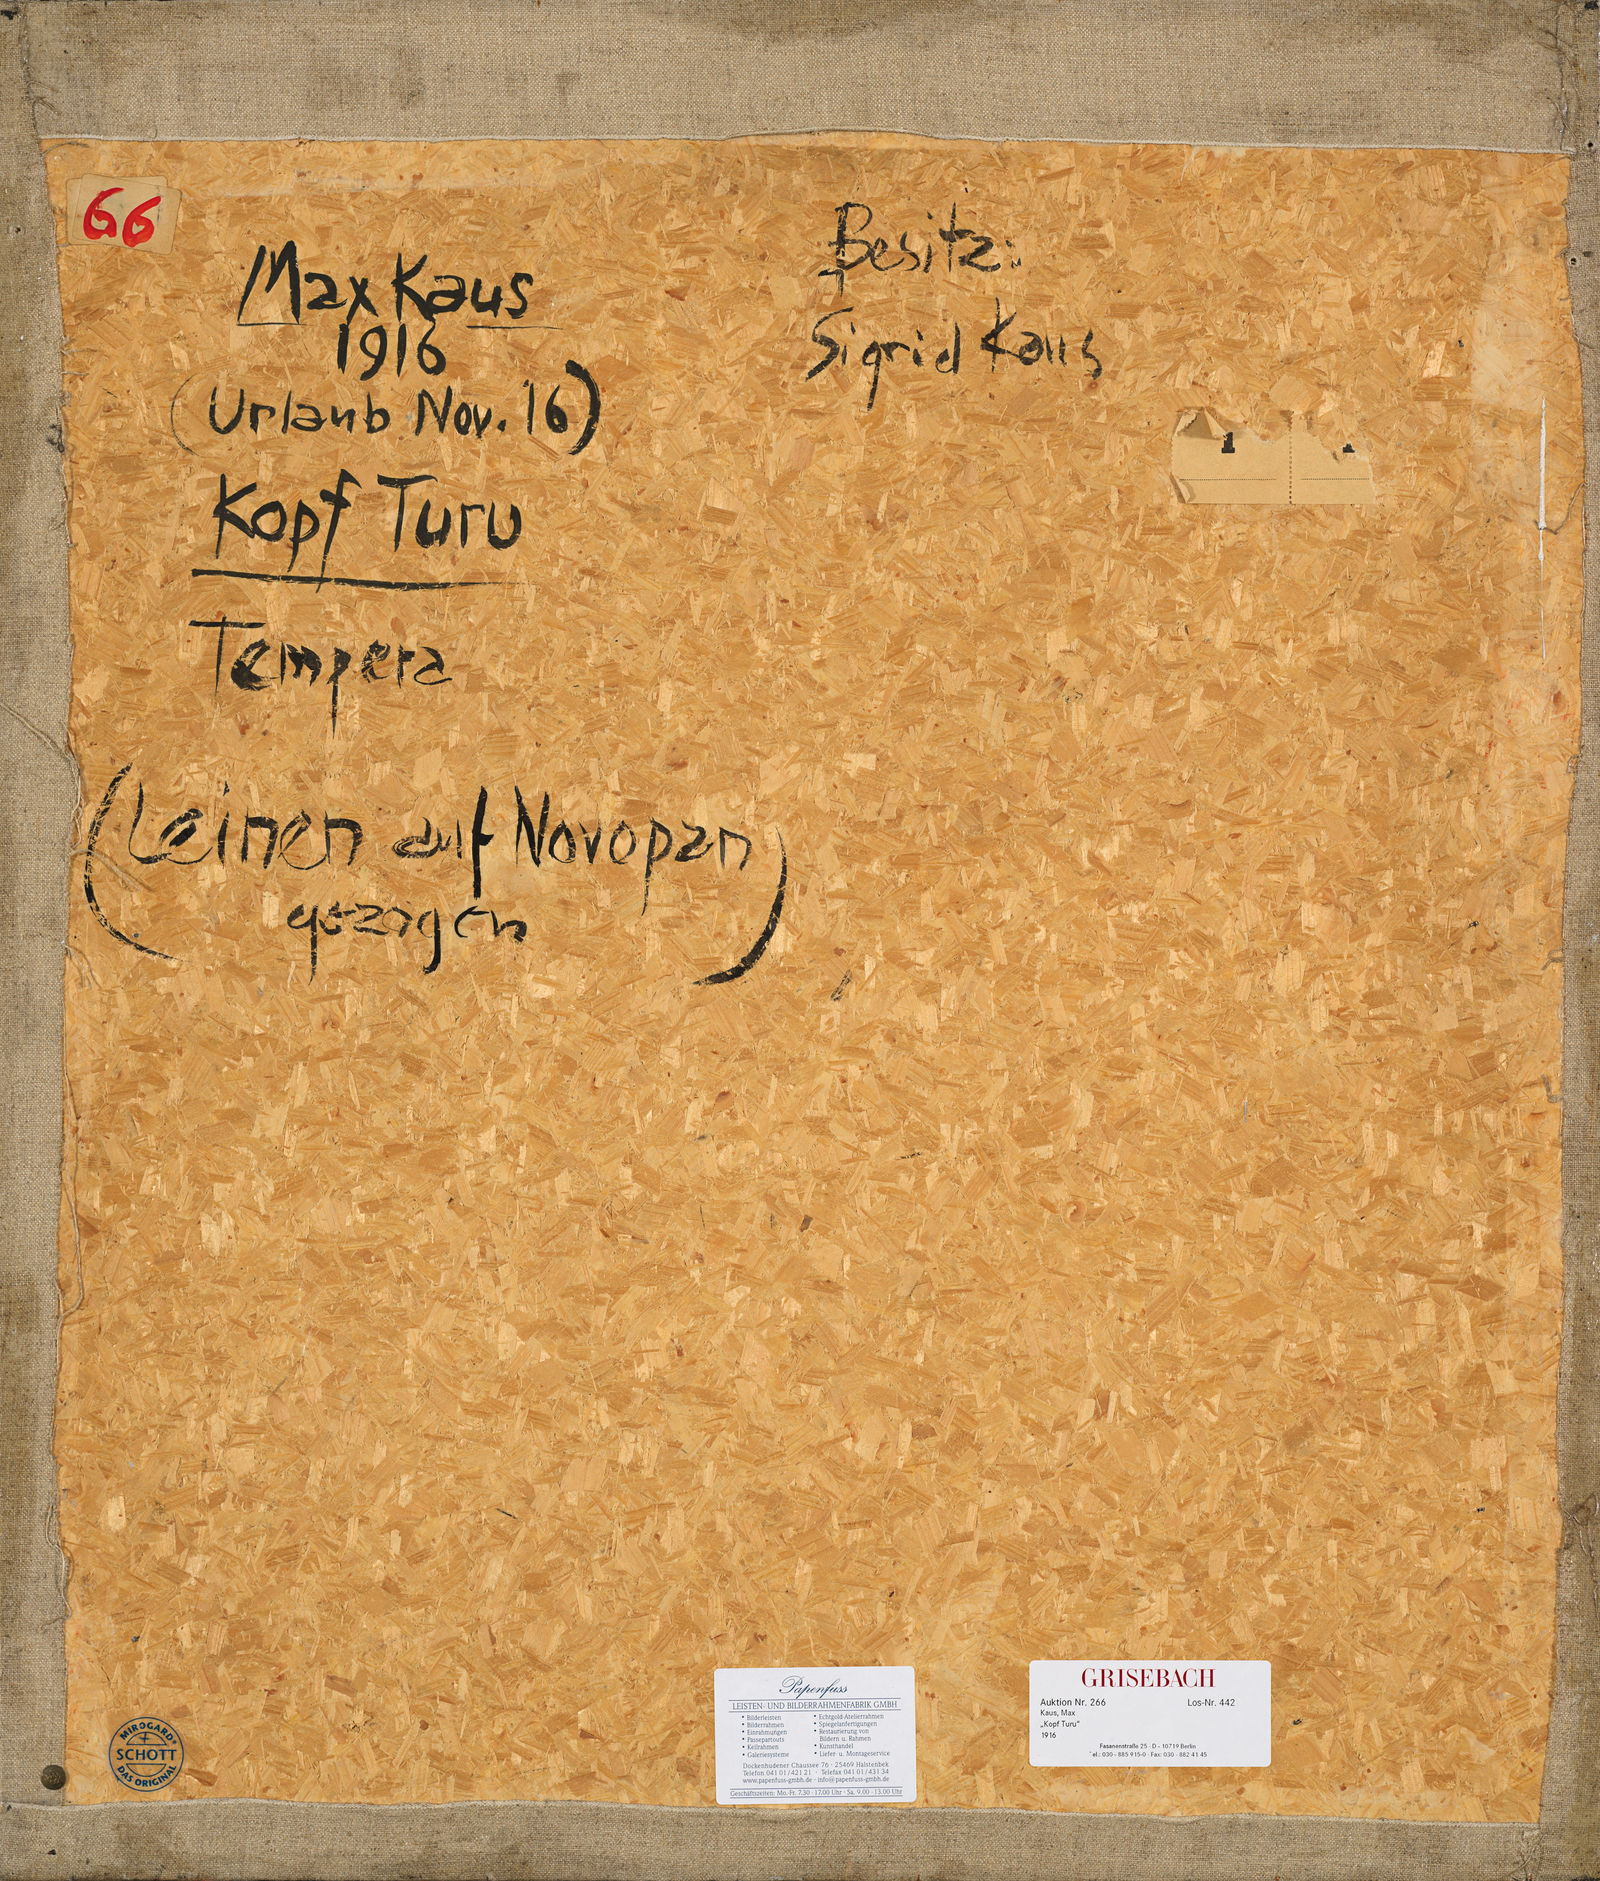 66
Max Kaus
1916
(Urlaub Nov. 16)
Kopf Turu
Tempera
(Leinen auf Novopan
gezogen)
Besitz:
Sigrid Kaus
1
1
MIROGARD®
SCHOTT
DAS ORIGINAL
Papenfuss
LEISTEN- UND BILDERRAHMENFABRIK GMBH
• Bilderleisten
• Bilderrahmen
• Einrahmungen
• Passepartouts
• Keilrahmen
• Galeriesysteme
• Echtgold-Atelierrahmen
• Spiegelanfertigungen
• Restaurierung von
Bildern u. Rahmen
• Kunsthandel
• Liefer- u. Montageservice
Dockenhudener Chaussee 76 · 25469 Halstenbek
Telefon 041 01/421 21 · Telefax 041 01/431 34
www.papenfuss-gmbh.de · info@papenfuss-gmbh.de
Geschäftszeiten: Mo.-Fr. 7.30 - 17.00 Uhr · Sa. 9.00 - 13.00 Uhr
GRISEBACH
Auktion Nr. 266 Los-Nr. 442
Kaus, Max
„Kopf Turu“
1916
Fasanenstraße 25 · D - 10719 Berlin
Tel.: 030 - 885 915-0 · Fax: 030 - 882 41 45